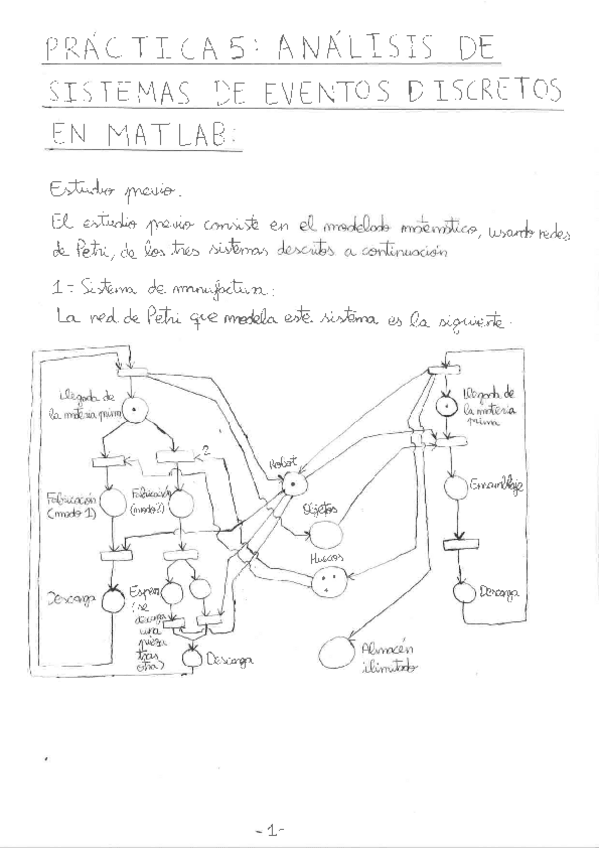 PRÁCTICA 5: ANÁLISIS DE
SISTEMAS DE EVENTOS DISCRETOS
EN MATLAB:
Estudio previo.
El estudio previo consiste en el modelado matemático, usando redes
de Petri, de los tres sistemas descritos a continuación
1= Sistema de manufactura:
La red de Petri que modela este sistema es la siguiente.
Llegada de
la materia prima
Llegada de
la materia
prima
2
Robot
Fabricación
(modo 1)
Fabricación
(modo 2)
Objetos
Ensamblaje
Huecos
Descarga
Espera
(se
descarga
una
pieza
tras
otra)
Descarga
Descarga
Almacén
ilimitado
-1-